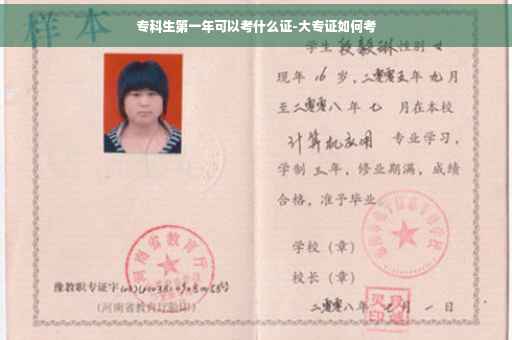 专科生第一年可以考什么证-大专证如何考
样本
学生段毅琳性别 女
现年 16 岁，二零零五年 九 月
至二零零八年 七 月在本校
计算机应用 专业学习，
学制 三 年，修业期满，成绩
合格，准予毕业
学校（章）
校长（章）
二零零八年 月一日
河南省教育厅
豫教职专证字
（河南省教育厅验印）